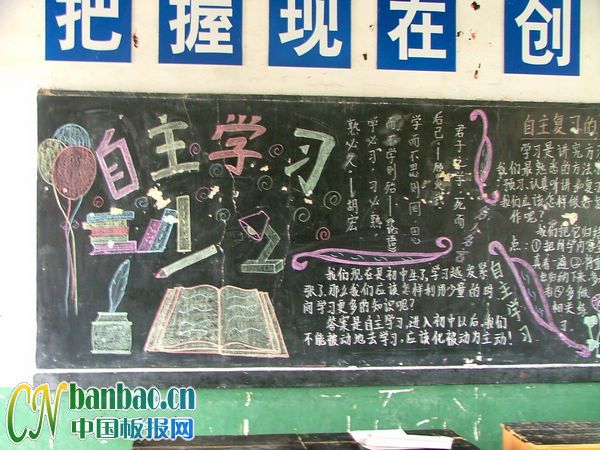 把握现在创
自主学习
君子之学,死而
后已。—顾炎武
学而不思则罔,思
而不学则殆—孔子
学必习,习必熟,
熟必久—胡宏
名人名言
我们现在是初中生了,学习越发紧
张了,那么我们应该怎样利用少量的时
间学习更多的知识呢?
答案是自主学习,进入初中以后,我们
不能被动地去学习,应该化被动为主动!
自主学习
自主复习的
学习是讲究方法
们最熟悉的方法
预习、认真听讲和复习
我们应该怎样做好复
作呢?
我们把它归结
点:①把所学内容
真看一遍②将
多做
相关练
习。
CNbanbao.cn
中国板报网